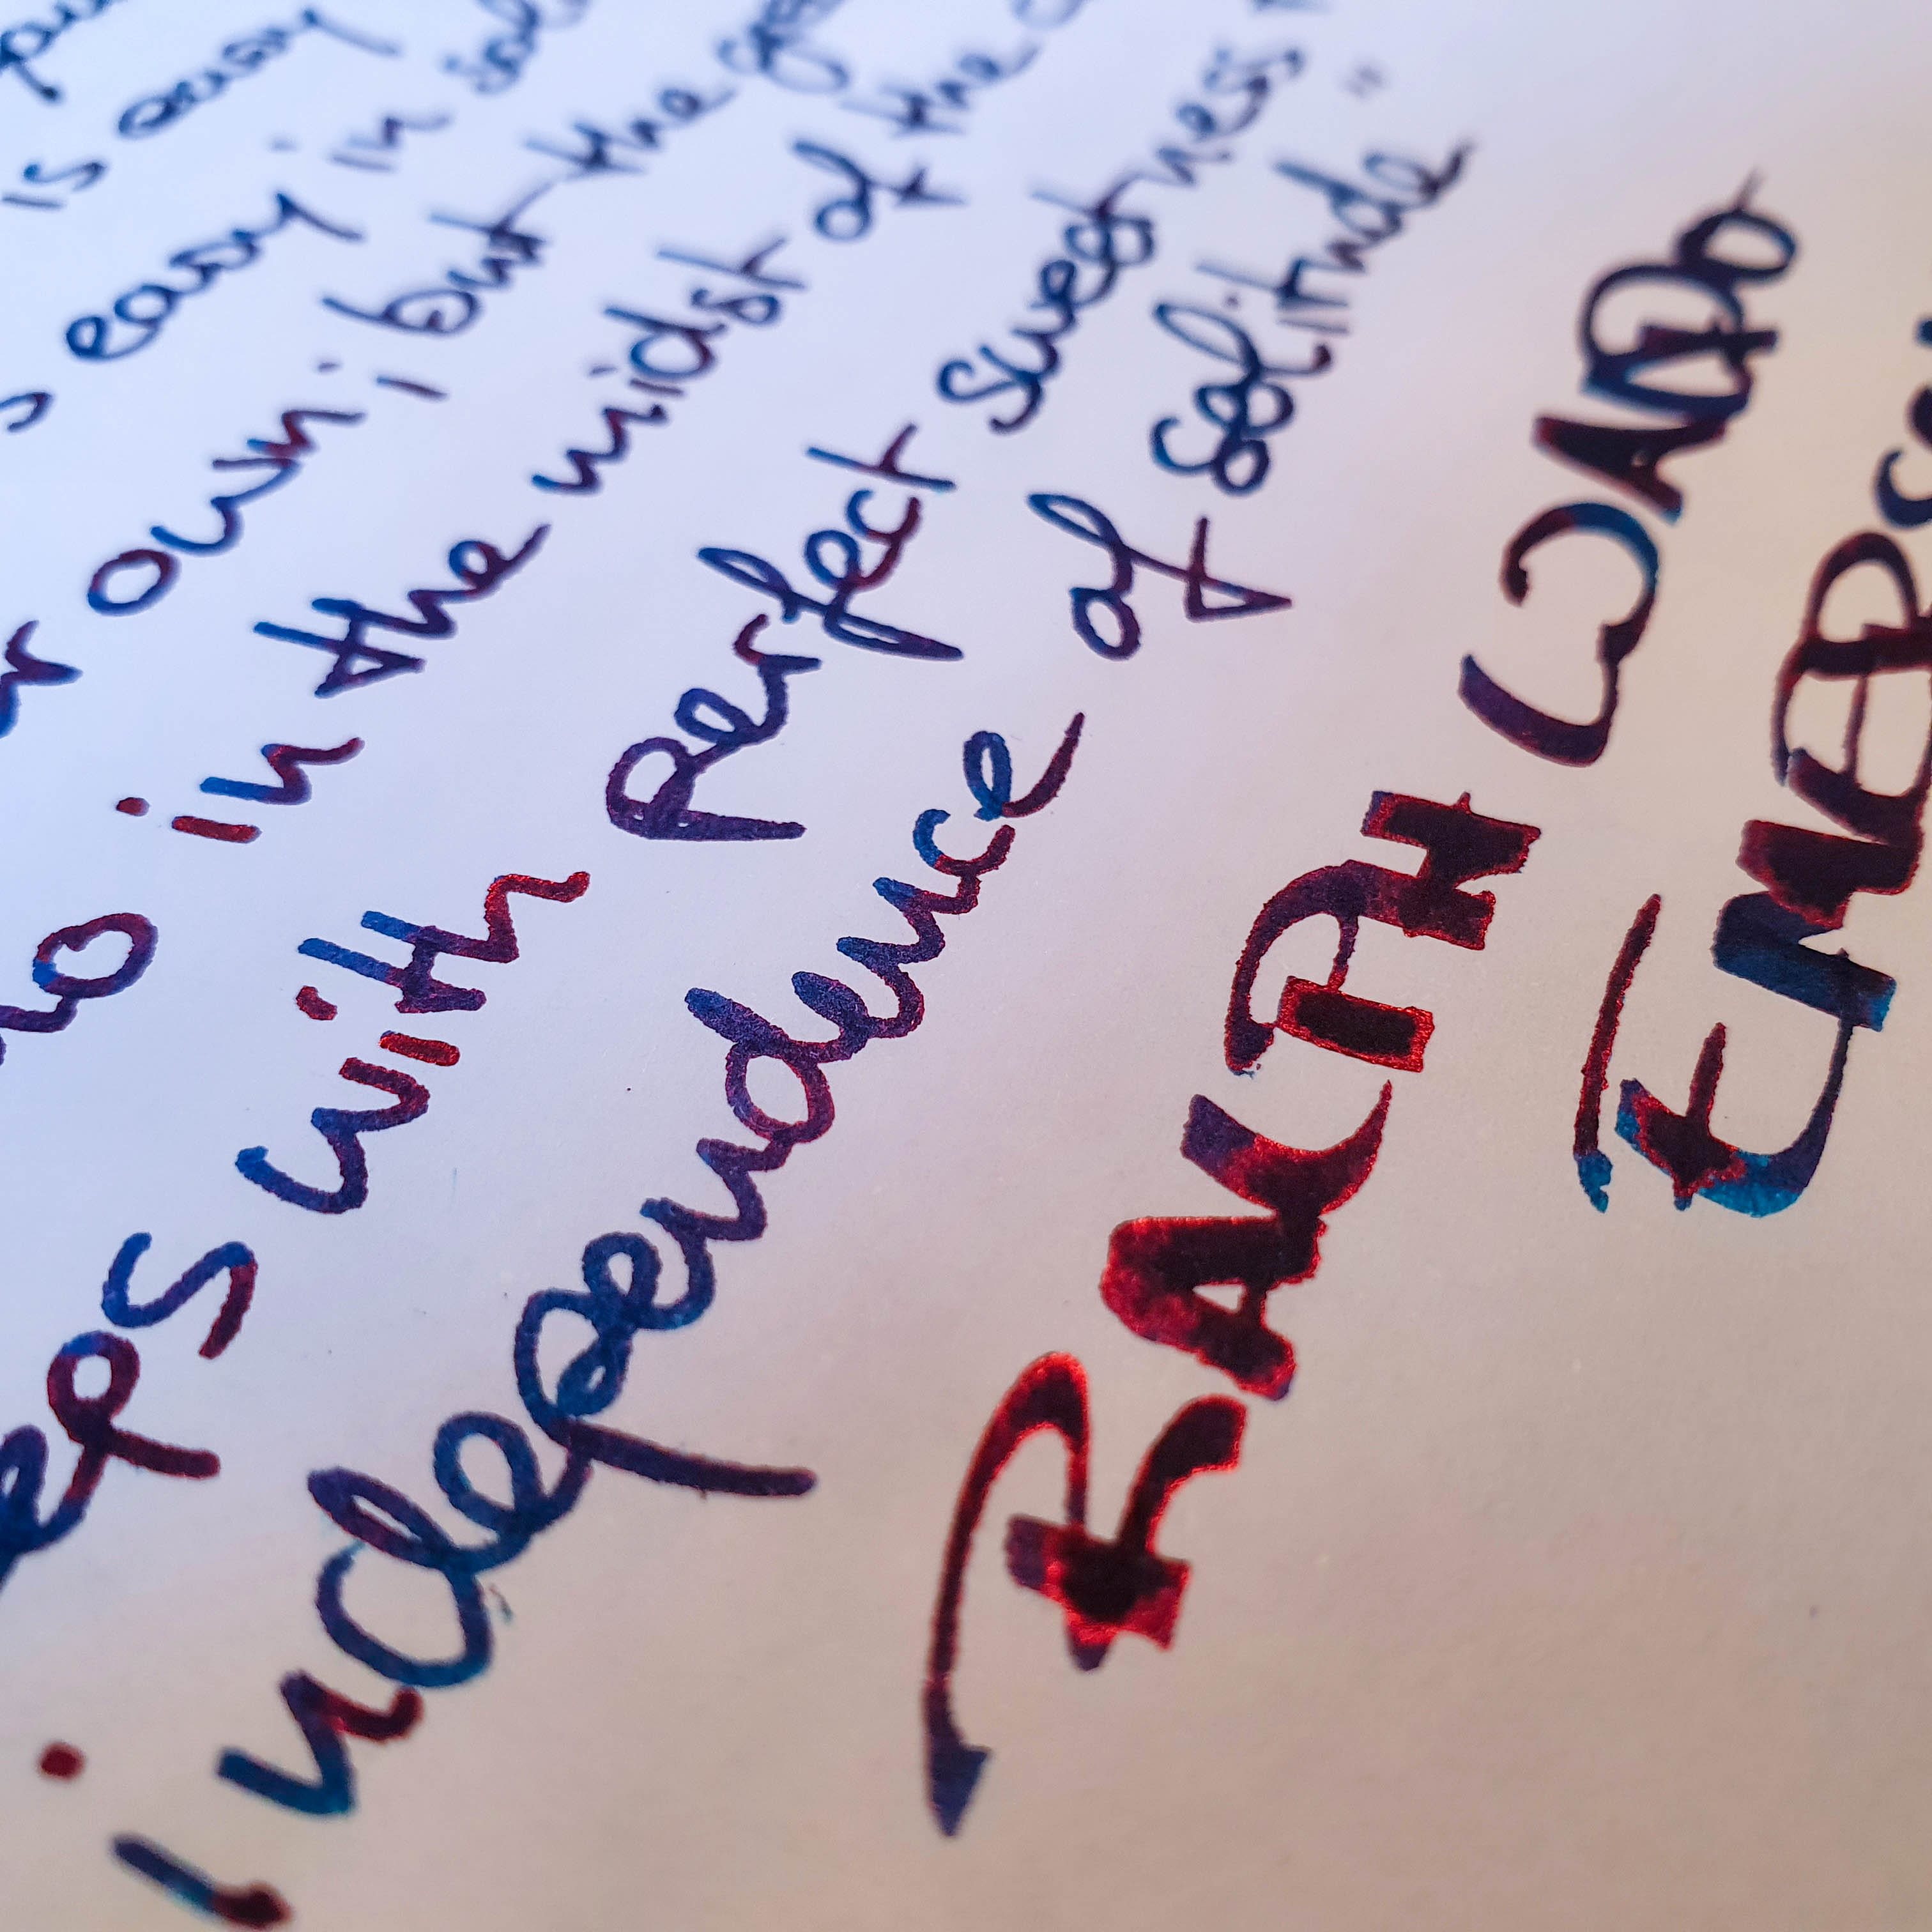 is easy
s easy in
r own; but the
ho in the midst of the
eps with perfect sweetness
independence of solitude"
RALPH WALDO
EMERS